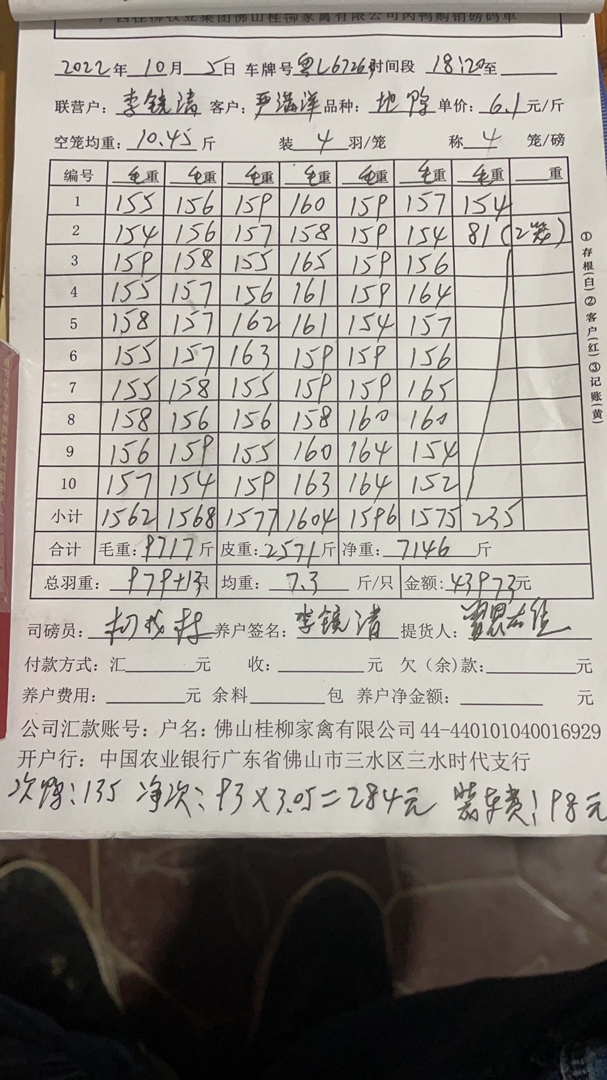 广西桂柳牧业集团佛山桂柳家禽有限公司肉鸭购销磅码单
2022年 10月 5日 车牌号 粤L67269 时间段 18:20至
联营户: 李镜清 客户: 严满洋 品种: 地鸭 单价: 6.1元/斤
空笼均重: 10.45斤 装 4 羽/笼 称 4 笼/磅
编号 毛重 毛重 毛重 毛重 毛重 毛重 毛重 重
1 155 156 159 160 159 157 154
2 154 156 157 158 159 154 81(2笼)
3 159 158 155 165 159 156
4 155 157 156 161 159 164
5 158 157 162 161 154 157
6 155 157 163 159 159 156
7 155 158 155 159 159 165
8 158 156 156 158 160 160
9 156 159 155 160 164 154
10 157 154 159 163 164 152
小计 1562 1568 1577 1604 1596 1575 235
合计 毛重: 9717斤 皮重: 2571斤 净重: 7146斤
总羽重: 979+13只 均重: 7.3斤/只 金额: 43973元
司磅员: 养户签名: 李镜清 提货人:
付款方式: 汇 元 收: 元 欠(余)款: 元
养户费用: 元 余料 包 养户净金额: 元
公司汇款账号: 户名: 佛山桂柳家禽有限公司 44-440101040016929
开户行: 中国农业银行广东省佛山市三水区三水时代支行
次鸭: 135 净次: 93×3.05=284元 装车费: 98元
①存根(白)②客户(红)③记账(黄)